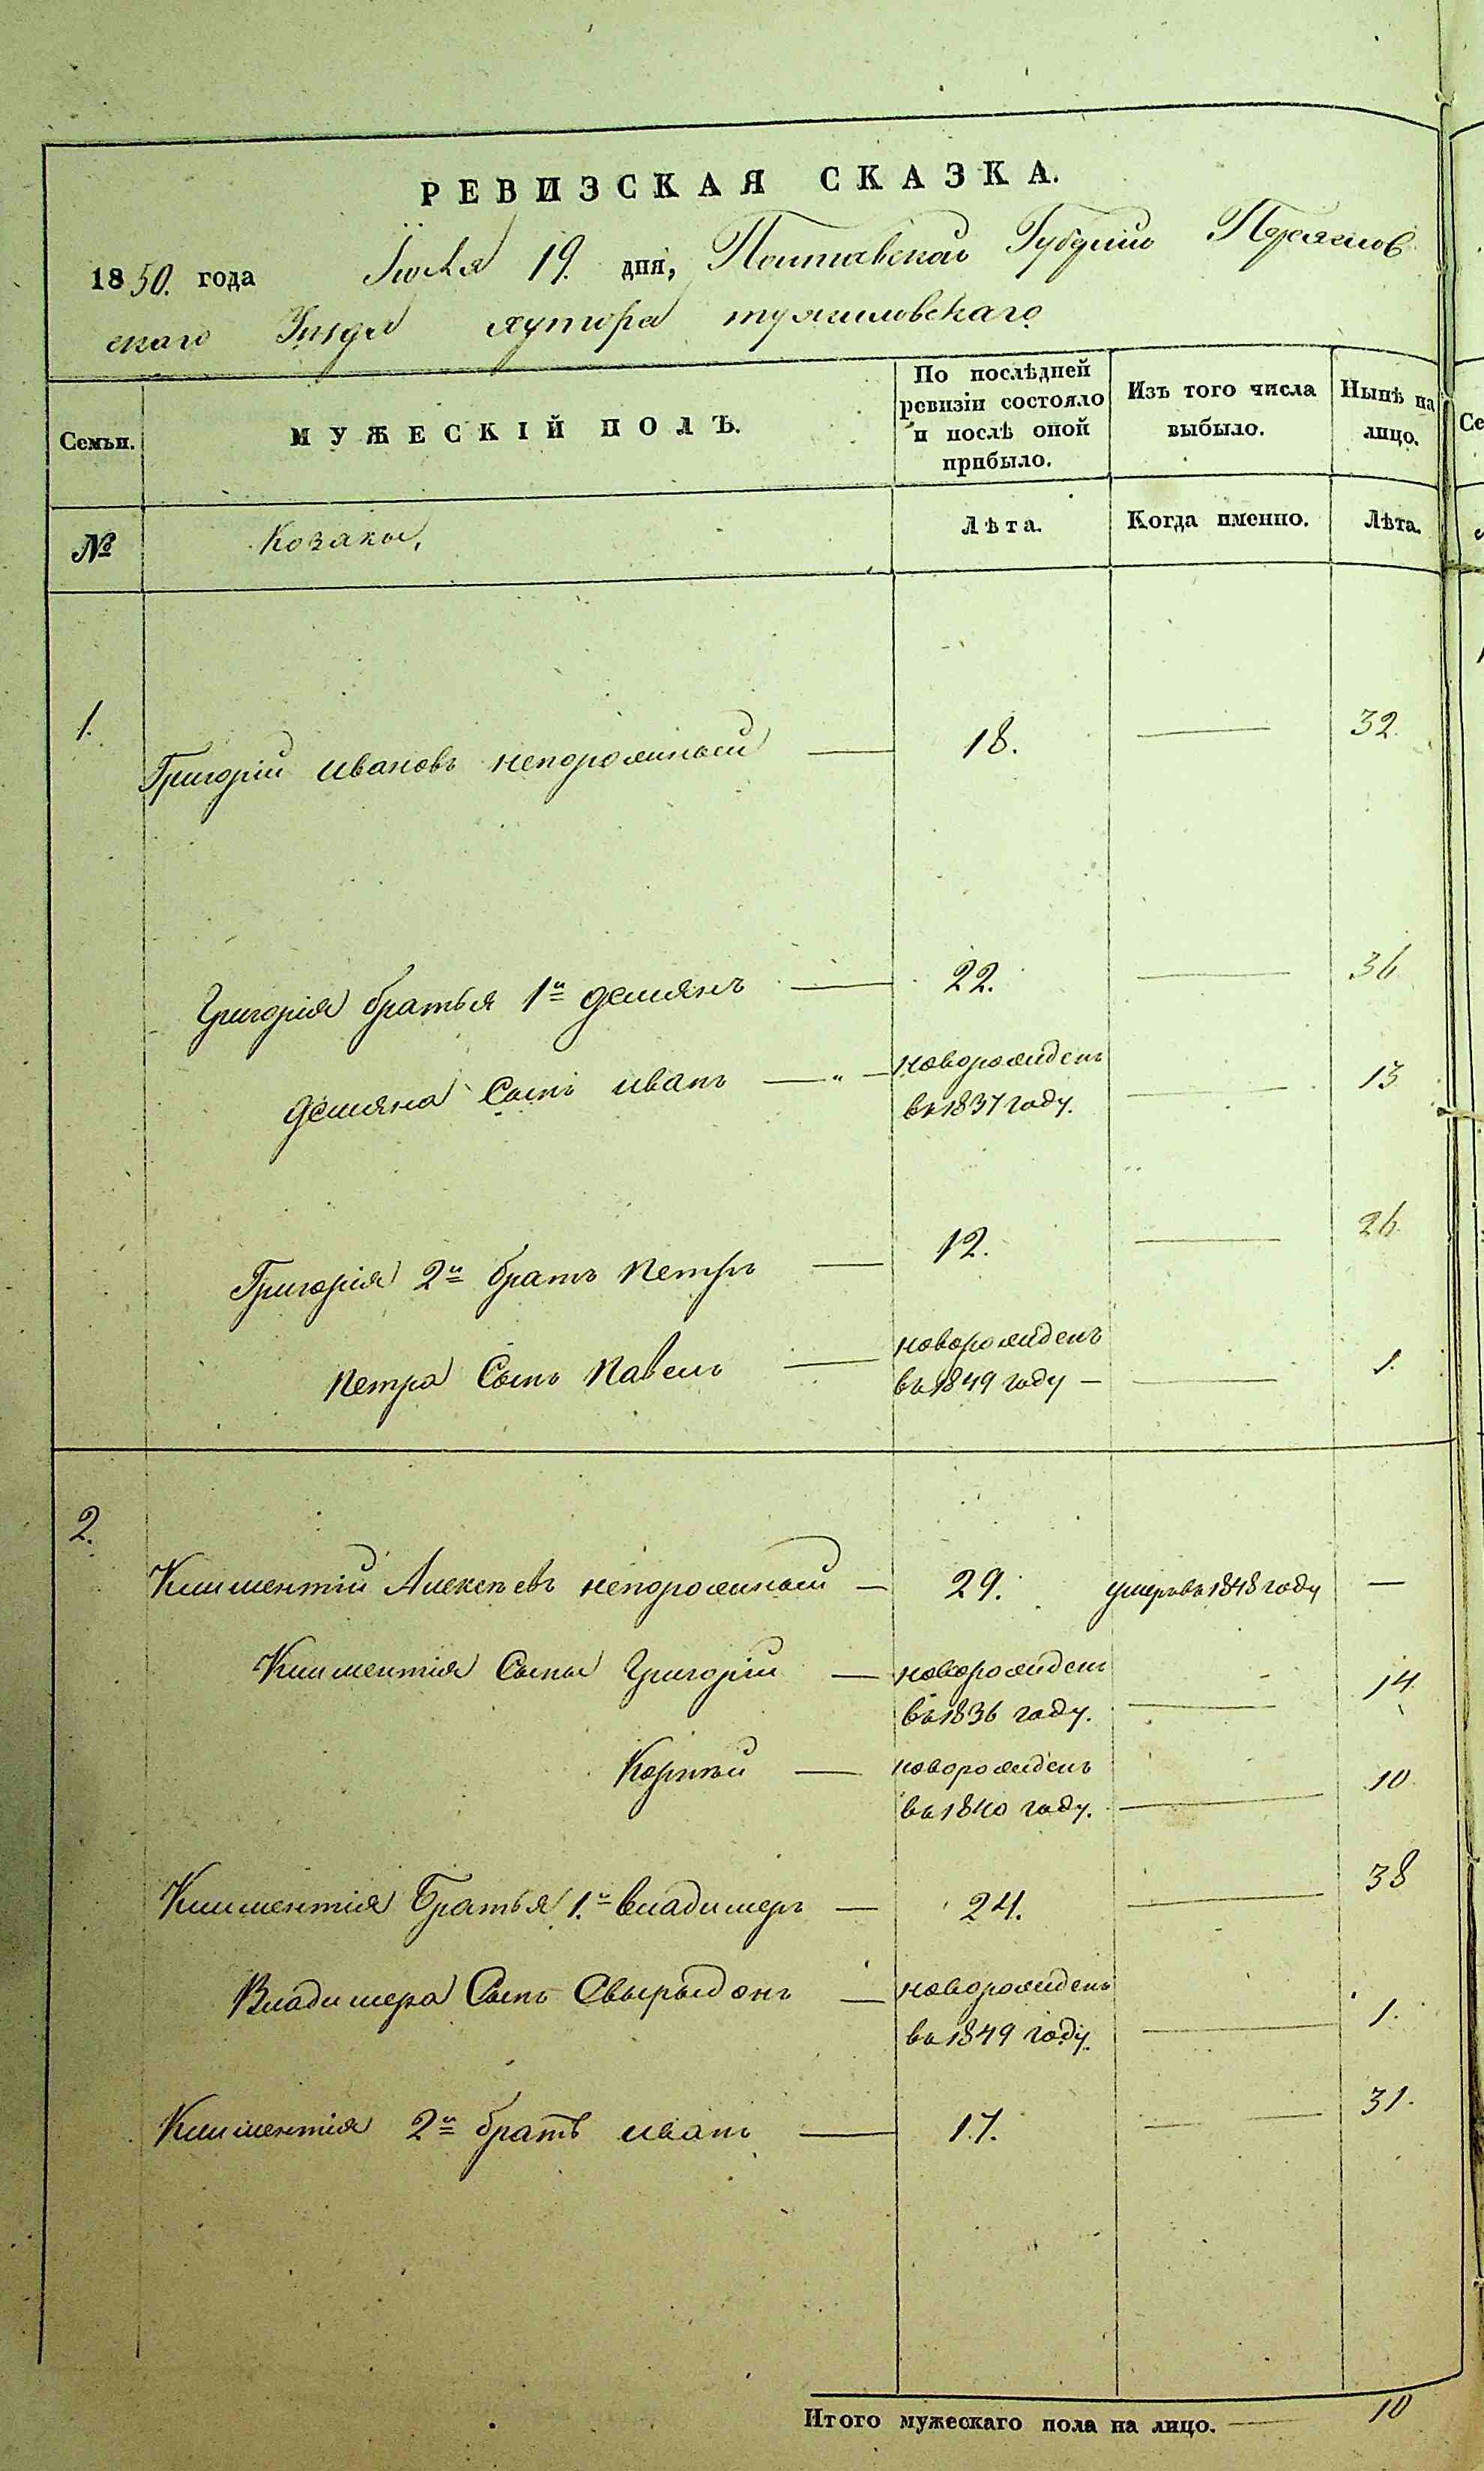 РЕВИЗСКАЯ СКАЗКА.
1850. года Іюля 19. дня, Полтавской Губерніи Переяслов
скаго Уезда хутора тужиловскаго
Семьи. МУЖЕСКІЙ ПОЛЪ. По послѣдней ревизіи состояло и послѣ оной прибыло. Изъ того числа выбыло. Нынѣ на лицо.
№ Козаки, Лѣта. Когда именно. Лѣта.
1. Григорій ивановъ непорожный — 18. — 32.
Григорія братья 1й демянъ — 22. — 36
демяна Сынъ иванъ — новорожденъ — 13
въ 1837 году.
Григорія 2й братъ петръ — 12. — 26.
петра Сынъ павелъ — новорожденъ
въ 1849 году — — 1.
2. Климентий Алексѣевъ непорожный — 29. умеръ въ 1848 году —
Климентія Сыны Григорій — новорожденъ
въ 1836 году. — 14.
Корнѣй — новорожденъ
въ 1840 году. — 10.
Климентія Братья 1.й владимеръ — 24. — 38
Владимера Сынъ Свырыдонъ — новорожденъ
въ 1849 году. — 1.
Климентія 2й братъ иванъ — 17. — 31.
Итого мужескаго пола на лицо. — 10